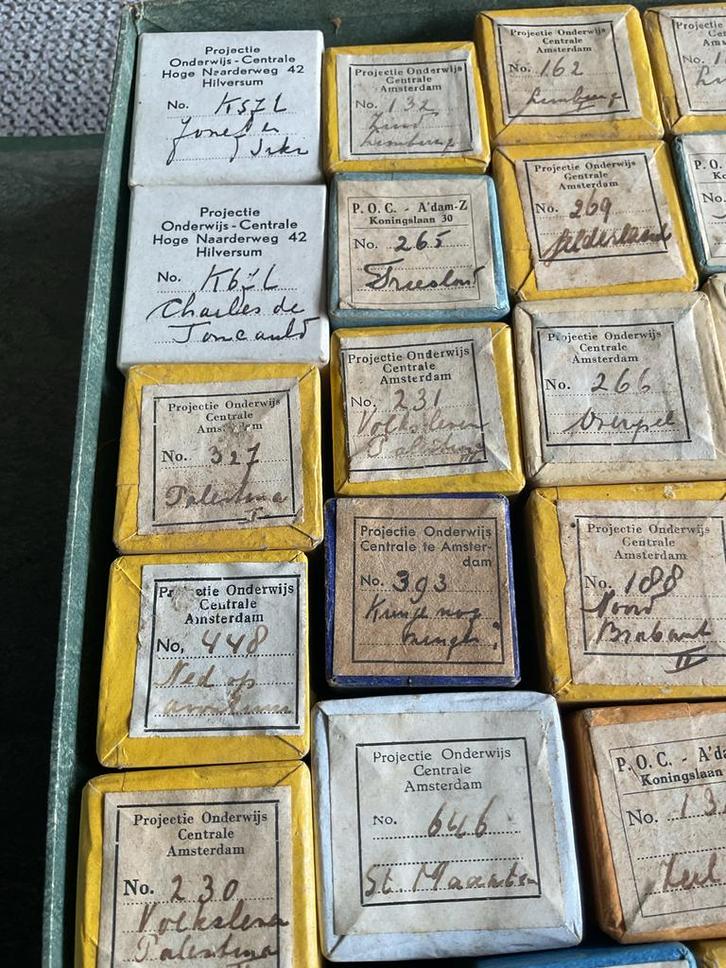 Projectie
Onderwijs-Centrale
Hoge Naarderweg 42
Hilversum
No.
Projectie Onderwijs
Centrale
Amsterdam
No. 132
Zuid
Limburg
Projectie Onderwijs
Centrale
Amsterdam
No. 162
Limburg
Projectie
Onderwijs-Centrale
Hoge Naarderweg 42
Hilversum
No.
Charles de
Foucauld
P. O. C. - A'dam-Z
Koningslaan 30
No. 265
Friesland
Projectie Onderwijs
Centrale
Amsterdam
No. 269
Gelderland
Projectie Onderwijs
Centrale
Amsterdam
No. 327
Palestina
I
Projectie Onderwijs
Centrale
Amsterdam
No. 231
Volksleven
Palestina
Projectie Onderwijs
Centrale
Amsterdam
No. 266
Projectie Onderwijs
Centrale
Amsterdam
No. 448
Ned op
Projectie Onderwijs
Centrale te Amster-
dam
No. 393
nog
Projectie Onderwijs
Centrale
Amsterdam
No. 188
Noord
Brabant
IV
Projectie Onderwijs
Centrale
Amsterdam
No. 230
Volksleven
Palestina
Projectie Onderwijs
Centrale
Amsterdam
No. 646
St. Maarten
P. O. C. - A'da
Koningslaan
No. 13